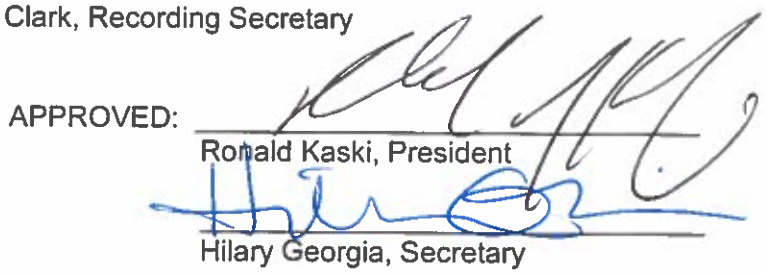 Clark, Recording Secretary
APPROVED:
Ronald Kaski, President
Hilary Georgia, Secretary